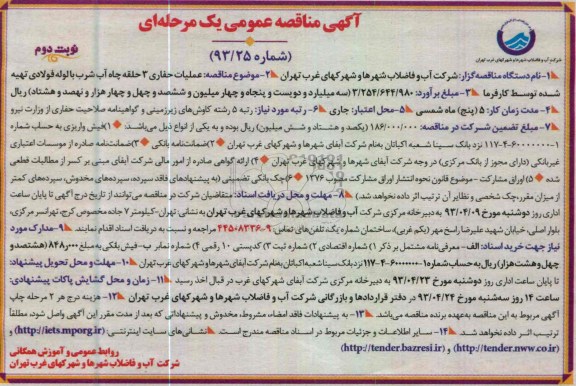 آگهی مناقصه عمومی یک مرحله‌ای
(شماره ۹۳/۲۵)
نوبت دوم
شرکت آب و فاضلاب شهرها و شهرکهای غرب تهران
۱-نام دستگاه مناقصه‌گزار: شرکت آب و فاضلاب شهرها و شهرکهای غرب تهران ۲-موضوع مناقصه: عملیات حفاری ۳ حلقه چاه آب شرب با لوله فولادی تهیه
شده توسط کارفرما ۳-مبلغ برآورد: ۳/۲۵۴/۶۴۴/۹۸۰ (سه میلیارد و دویست و پنجاه و چهار میلیون و ششصد و چهل و چهار هزار و نهصد و هشتاد) ریال
۴-مدت زمان کار: ۵ (پنج) ماه شمسی ۵-محل اعتبار: جاری ۶-رتبه مورد نیاز: رتبه ۵ رشته کاوش‌های زیرزمینی و گواهینامه صلاحیت حفاری از وزارت نیرو
۷-مبلغ تضمین شرکت در مناقصه: ۱۸۶/۰۰۰/۰۰۰ (یکصد و هشتاد و شش میلیون) ریال بوده و به یکی از انواع ذیل می‌باشد: ۱) فیش واریزی به حساب شماره
۱-۶۰۰۰۰۰۰-۴-۱۱۷ نزد بانک سینا شعبه اکباتان به‌نام شرکت آبفای شهرها و شهرکهای غرب تهران ۲) ضمانتنامه بانکی ۳) ضمانت‌نامه صادره از موسسات اعتباری
غیربانکی (دارای مجوز از بانک مرکزی) در وجه شرکت آبفای شهرها و شهرکهای غرب تهران ۴) ارائه گواهی صادره از امور مالی شرکت آبفای مبنی بر کسر از مطالبات قطعی
شده ۵) اوراق مشارکت - موضوع قانون نحوه انتشار اوراق مشارکت مصوب ۱۳۷۶ ۶) چک بانکی تضمینی (به پیشنهادهای فاقد سپرده، سپرده‌های مخدوش، سپرده‌های کمتر
از میزان مقرر، چک شخصی و نظایر آن ترتیب اثر داده نخواهد شد.) ۸-مهلت و محل دریافت اسناد: متقاضیان شرکت در مناقصه می‌توانند از تاریخ درج آگهی تا پایان ساعت
اداری روز دوشنبه مورخ ۹۳/۰۴/۰۹ به دبیرخانه مرکزی شرکت آب و فاضلاب شهرها و شهرکهای غرب تهران به نشانی تهران-کیلومتر ۷ جاده مخصوص کرج، تهرانسر مرکزی
بلوار اصلی، خیابان شهید علیرضا راسخ مهر (یکم غربی)، ساختمان شماره یک، تلفن‌های تماس: ۹-۴۴۵۰۸۳۳۶ مراجعه و نسبت به دریافت اسناد اقدام نمایند. ۹-مدارک مورد
نیاز جهت خرید اسناد: الف - معرفی‌نامه مشتمل بر ذکر ۱) شماره اقتصادی ۲) شماره ثبت ۳) کدپستی ۱۰ رقمی ۴) شماره نمابر ب-فیش بانکی به مبلغ ۸۴۸/۰۰۰ (هشتصد و
چهل و هشت هزار) ریال به حساب شماره ۱-۶۰۰۰۰۰۰-۴-۱۱۷ نزد بانک سینا شعبه اکباتان به‌نام شرکت آبفای شهرها و شهرکهای غرب تهران ۱۰-مهلت و محل تحویل پیشنهاد:
تا پایان ساعت اداری روز دوشنبه مورخ ۹۳/۰۴/۲۳ به دبیرخانه مرکزی شرکت آبفای شهرکهای غرب در قبال اخذ رسید ۱۱-زمان و محل گشایش پاکات پیشنهادی:
ساعت ۱۴ روز سه‌شنبه مورخ ۹۳/۰۴/۲۴ در دفتر قراردادها و بازرگانی شرکت آب و فاضلاب شهرها و شهرکهای غرب تهران ۱۲-هزینه درج هر ۲ مرحله چاپ
آگهی مربوط به این مناقصه به‌عهده برنده مناقصه می‌باشد ۱۳-به پیشنهادات فاقد امضاء، مشروط، مخدوش و پیشنهاداتی که بعد از مدت مقرر این آگهی واصل شود، مطلقاً
ترتیب اثر داده نخواهد شد. ۱۴-سایر اطلاعات و جزئیات مربوط در اسناد مناقصه مندرج است. نشانی‌های سایت اینترنتی: (http://iets.mporg.ir) و
(http://tender.nww.co.ir) و (http://tender.bazresi.ir)
روابط عمومی و آموزش همگانی
شرکت آب و فاضلاب شهرها و شهرکهای غرب تهران